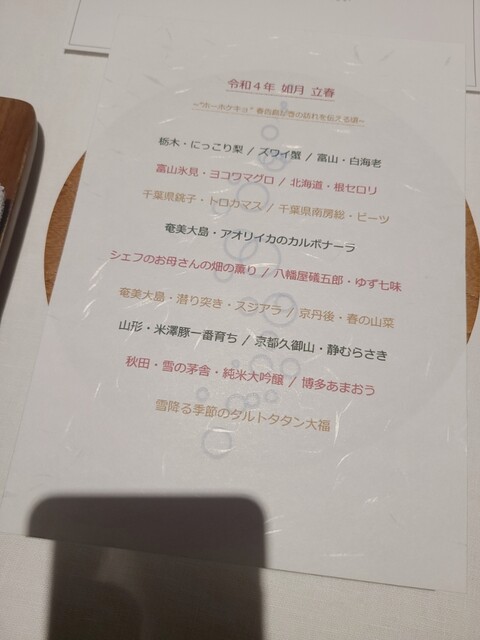 令和４年 如月 立春
～“ホーホケキョ” 春告鳥が春の訪れを伝える頃～
栃木・にっこり梨 / ズワイ蟹 / 富山・白海老
富山氷見・ヨコワマグロ / 北海道・根セロリ
千葉県銚子・トロカマス / 千葉県南房総・ビーツ
奄美大島・アオリイカのカルボナーラ
シェフのお母さんの畑の薫り / 八幡屋礒五郎・ゆず七味
奄美大島・潜り突き・スジアラ / 京丹後・春の山菜
山形・米澤豚一番育ち / 京都久御山・静むらさき
秋田・雪の茅舎・純米大吟醸 / 博多あまおう
雪降る季節のタルトタタン大福